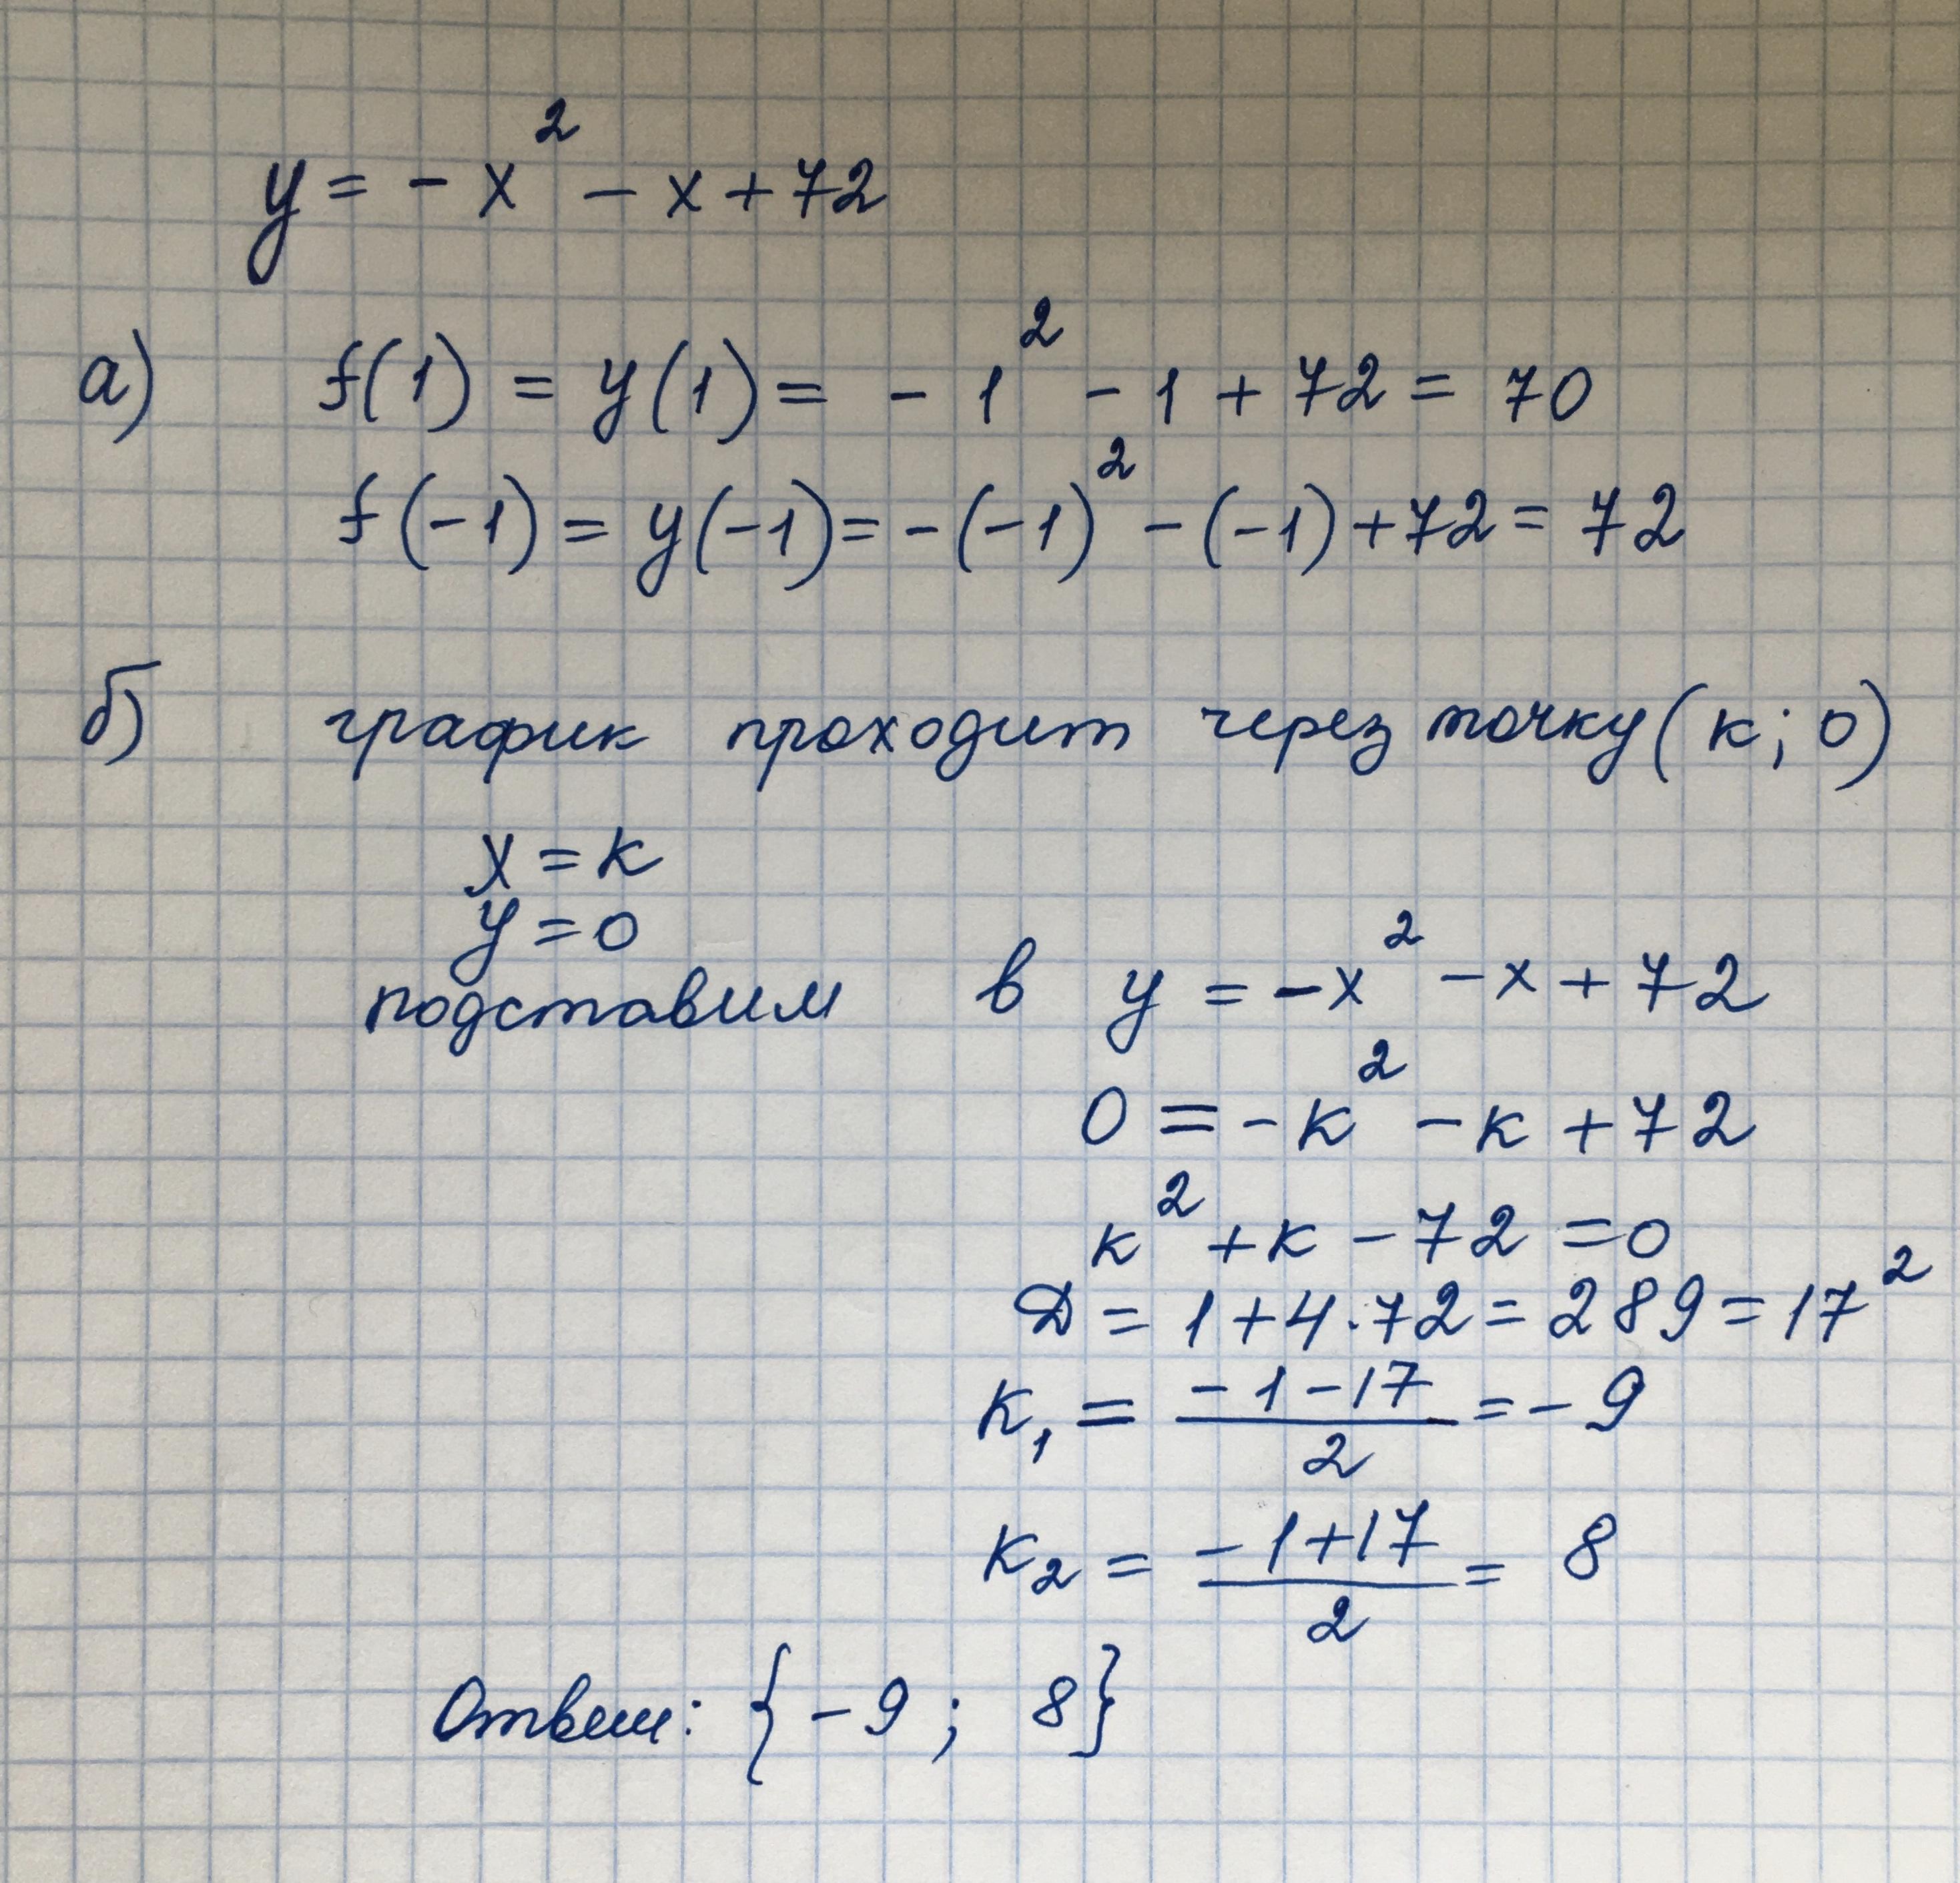 y = - x² - x + 72
а) f(1) = y(1) = - 1² - 1 + 72 = 70
f(-1) = y(-1) = -(-1)² - (-1) + 72 = 72
б) график проходит через точку (к; 0)
x = к
y = 0
подставим в y = -x² - x + 72
0 = -к² - к + 72
к² + к - 72 = 0
D = 1 + 4 · 72 = 289 = 17²
к₁ = (-1 - 17)/2 = -9
к₂ = (-1 + 17)/2 = 8
Ответ: {-9; 8}